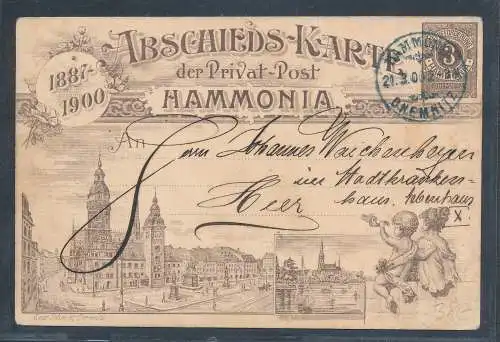 ABSCHIEDS-KARTE
1887-
1900
der Privat-Post
HAMMONIA
HAMMONIA
21.3.00
CHEMNITZ
3
An
Herrn Johannes Weichenberger
im Stadtkranken-
Hier
haus,
X
38.-